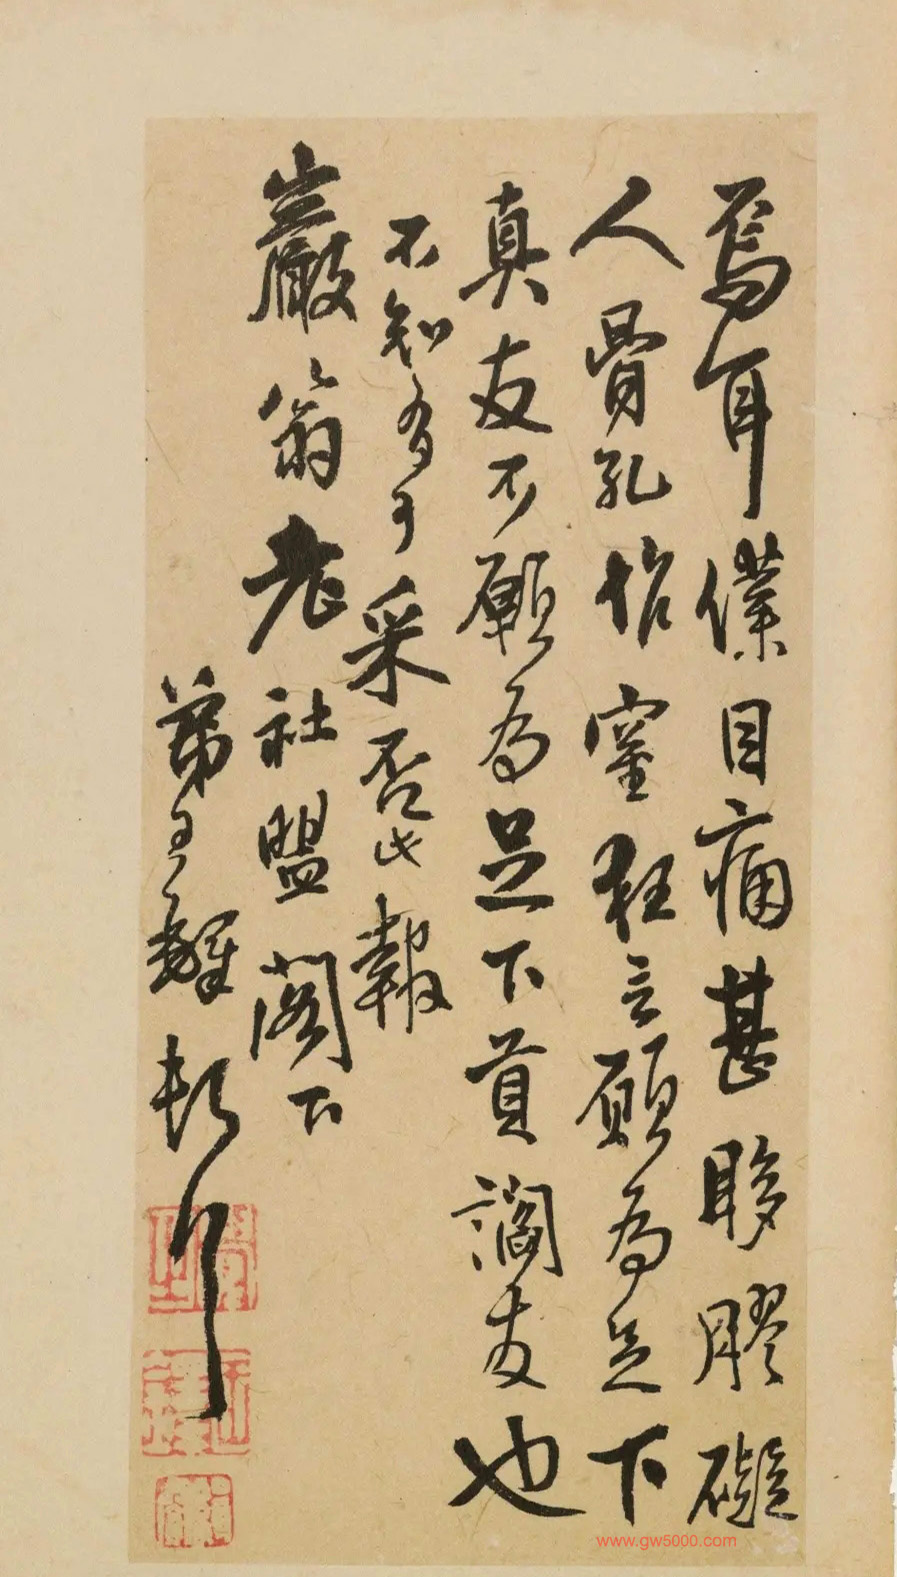 焉耳僕目痛甚眵膠礙
人骨孔怡窒狂言願為足下
真友不願為足下貢諂友也
不知有可采否此報
巖翁老社盟閣下
弟王鐸頓首
www.gw5000.com